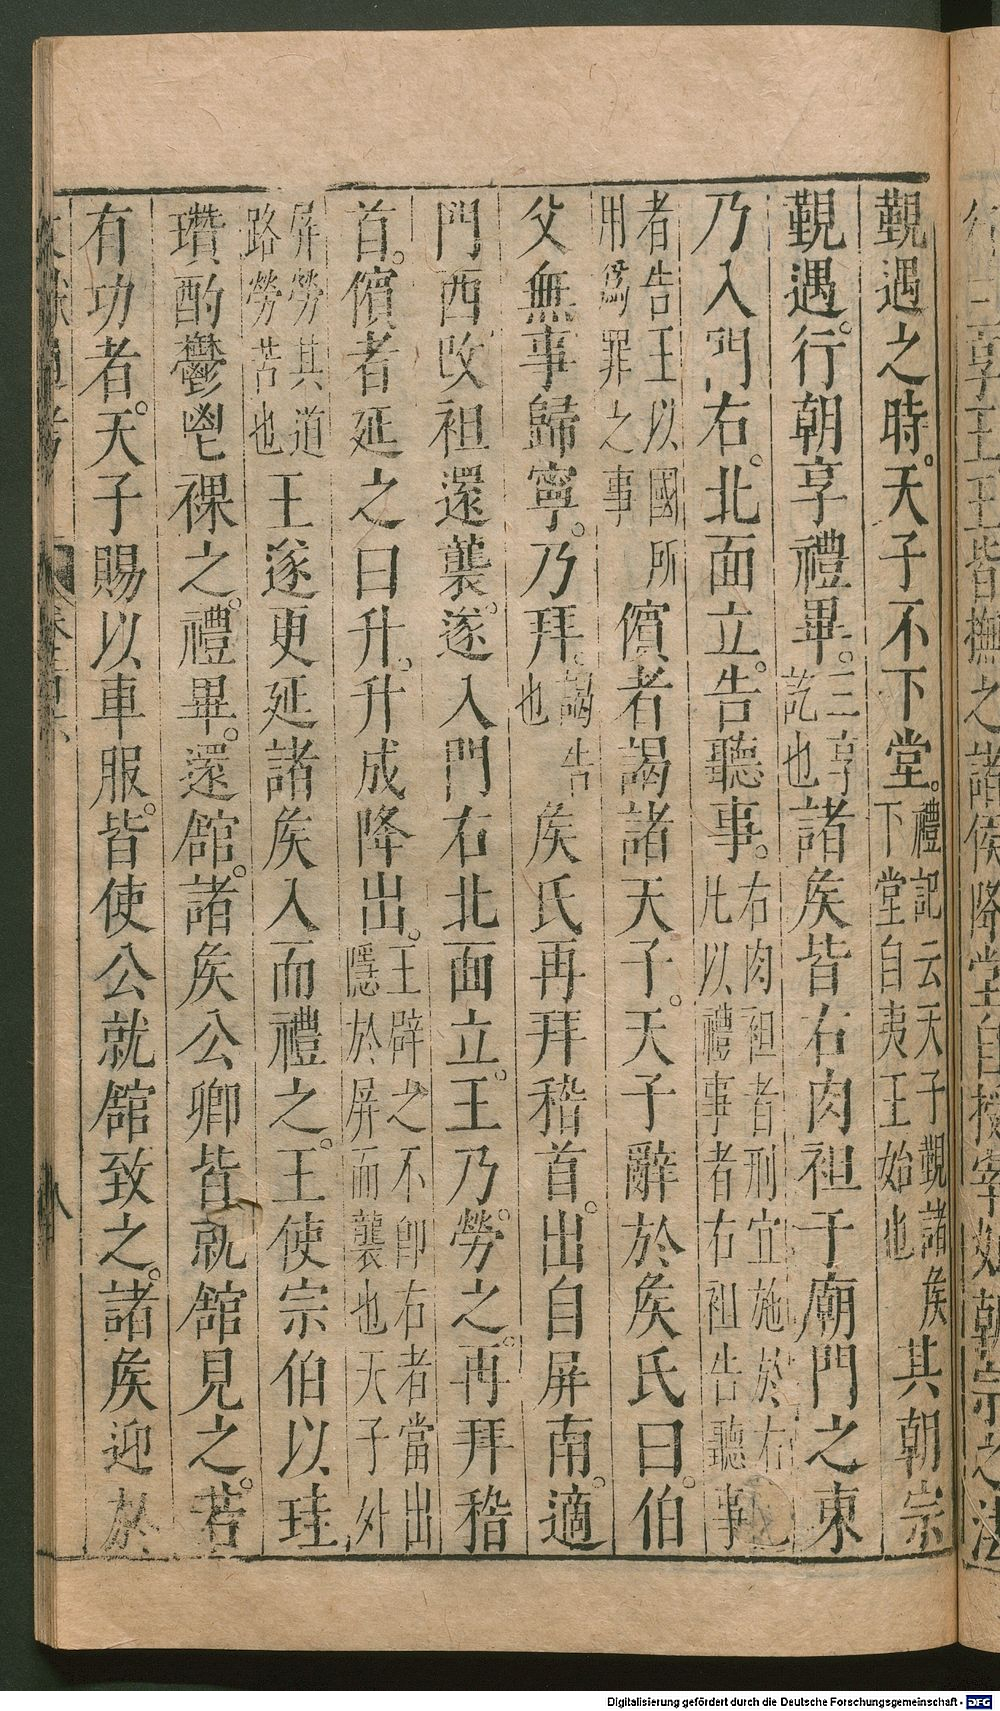 覲遇之時天子不下堂禮記云天子覲諸侯下堂自夷王始也其朝宗
覲遇行朝享禮畢三享訖也諸侯皆右肉袒于廟門之東
乃入門右北面立告聽事右肉袒者刑宜施於右也凡以禮事者右袒告聽事
者告王以國所用爲罪之事儐者謁諸天子天子辭於侯氏曰伯
父無事歸寧乃拜謁告也侯氏再拜稽首出自屏南適
門西改袒還襲遂入門右北面立王乃勞之再拜稽
首儐者延之曰升升成降出王辟之不卽右者當出隱於屏而襲也天子外
屏勞勞其道路勞苦也王遂更延諸侯入而禮之王使宗伯以珪
瓚酌鬱鬯祼之禮畢還館諸侯公卿皆就館見之若
有功者天子賜以車服皆使公就館致之諸侯迎於
八
Digitalisierung gefördert durch die Deutsche Forschungsgemeinschaft - DFG